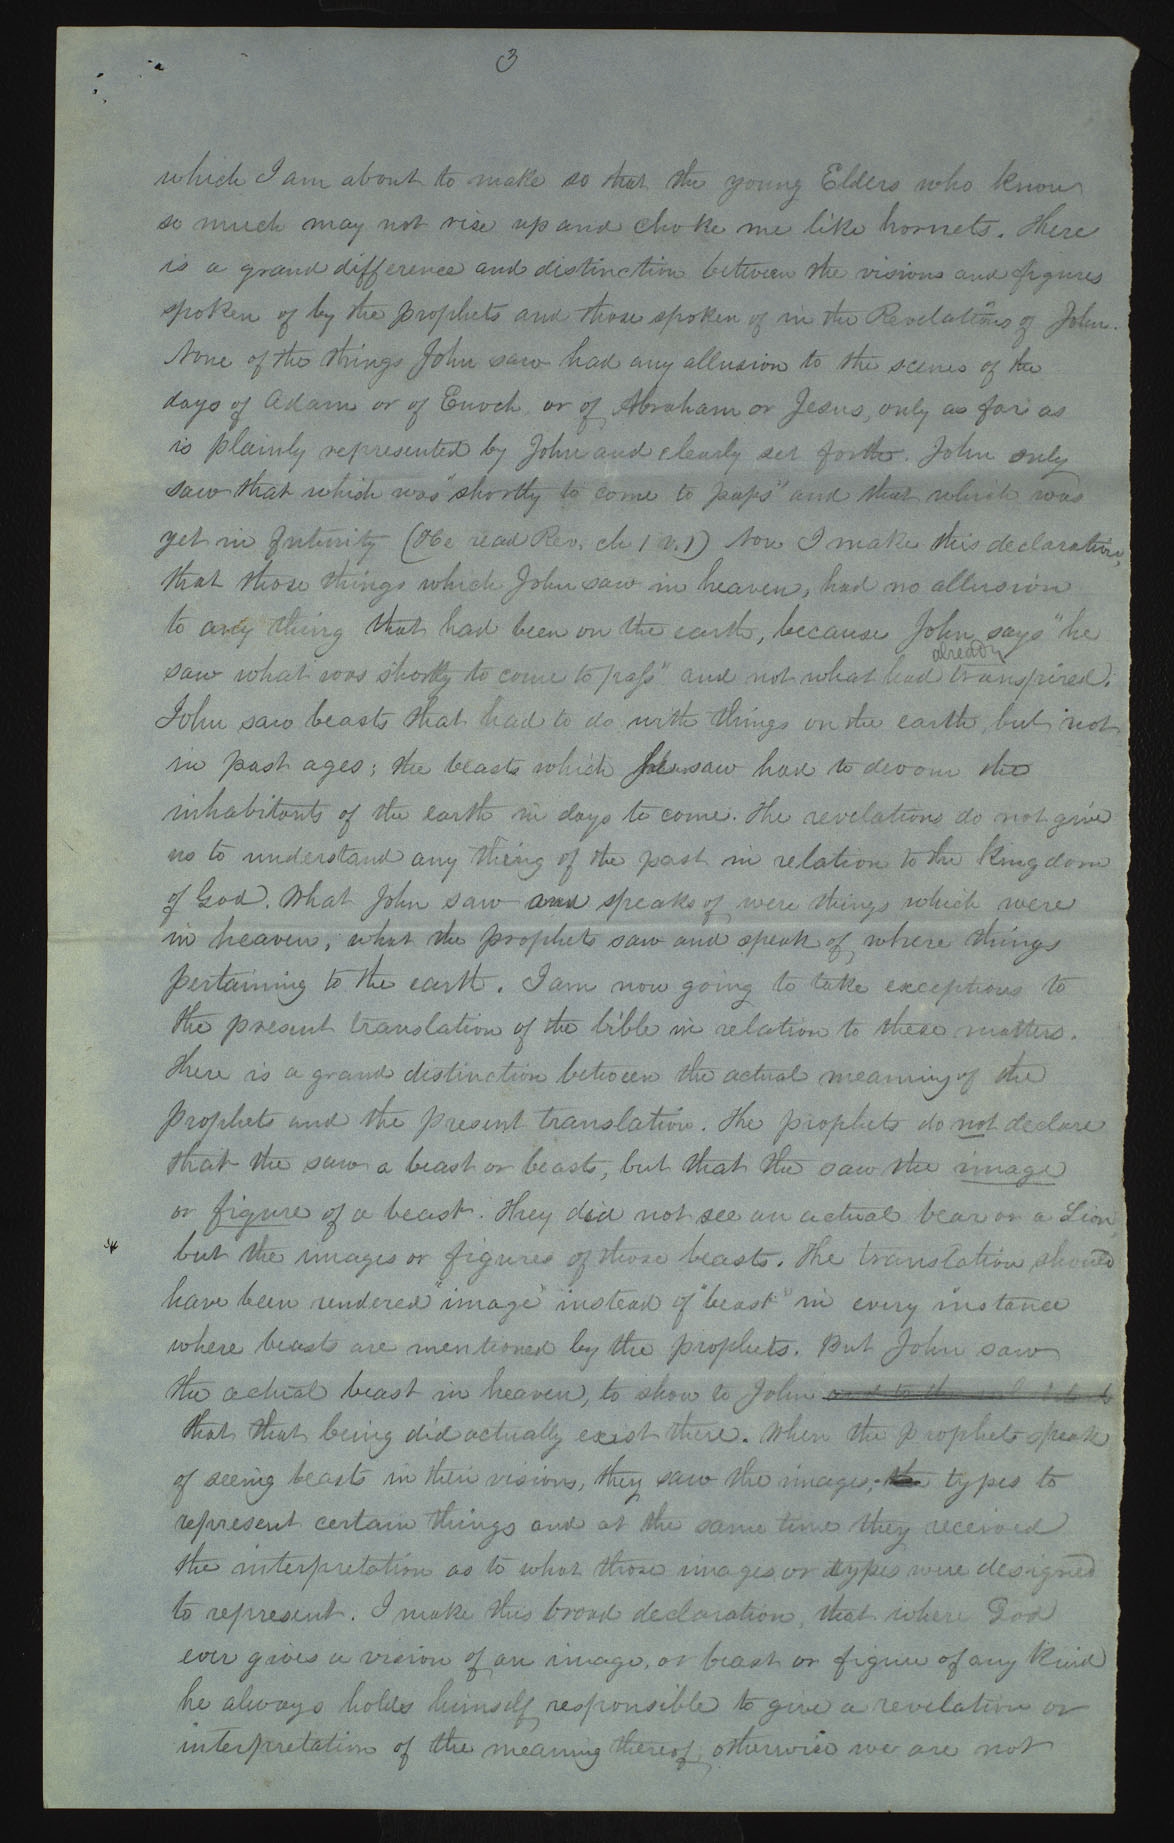 3
which I am about to make so that the young Elders who know
so much may not rise up and choke me like hornets. There
is a grand difference and distinction between the visions and figures
spoken of by the prophets and those spoken of in the Revelations of John.
None of the things John saw had any allusion to the scenes of the
days of Adam or of Enoch or of Abraham or Jesus, only as far as
is plainly represented by John and clearly set forth. John only
saw that which was "shortly to come to pass" and that which was
yet in futurity (He read Rev. ch 1 v. 1) Now I make this declaration,
that those things which John saw in heaven, had no allusion
to any thing that had been on the earth, because John says "he
saw what was shortly to come to pass" and not what had already transpired.
John saw beasts that had to do with things on the earth, but not
in past ages; the beasts which John saw had to devour the
inhabitants of the earth in days to come. The revelations do not give
us to understand any thing of the past in relation to the kingdom
of God. What John saw and speaks of were things which were
in heaven; what the prophets saw and speak of where things
pertaining to the earth. I am now going to take exceptions to
the present translation of the bible in relation to these matters.
There is a grand distinction between the actual meaning of the
prophets and the present translation. The prophets do not declare
that the saw a beast or beasts, but that the saw the image
or figure of a beast. They did not see an actual bear or a Lion,
but the images or figures of those beasts. The translation should
have been rendered "image" instead of "beast" in every instance
where beasts are mentioned by the prophets. But John saw
the actual beast in heaven, to show to John
that that being did actually exist there. When the prophets speak
of seeing beasts in their visions, they saw the images; the types to
represent certain things and at the same time they received
the interpretation as to what those images or types were designed
to represent. I make this broad declaration, that where God
ever gives a vision of an image, or beast or figure of any kind
he always holds himself responsible to give a revelation or
interpretation of the meaning thereof, otherwise we are not